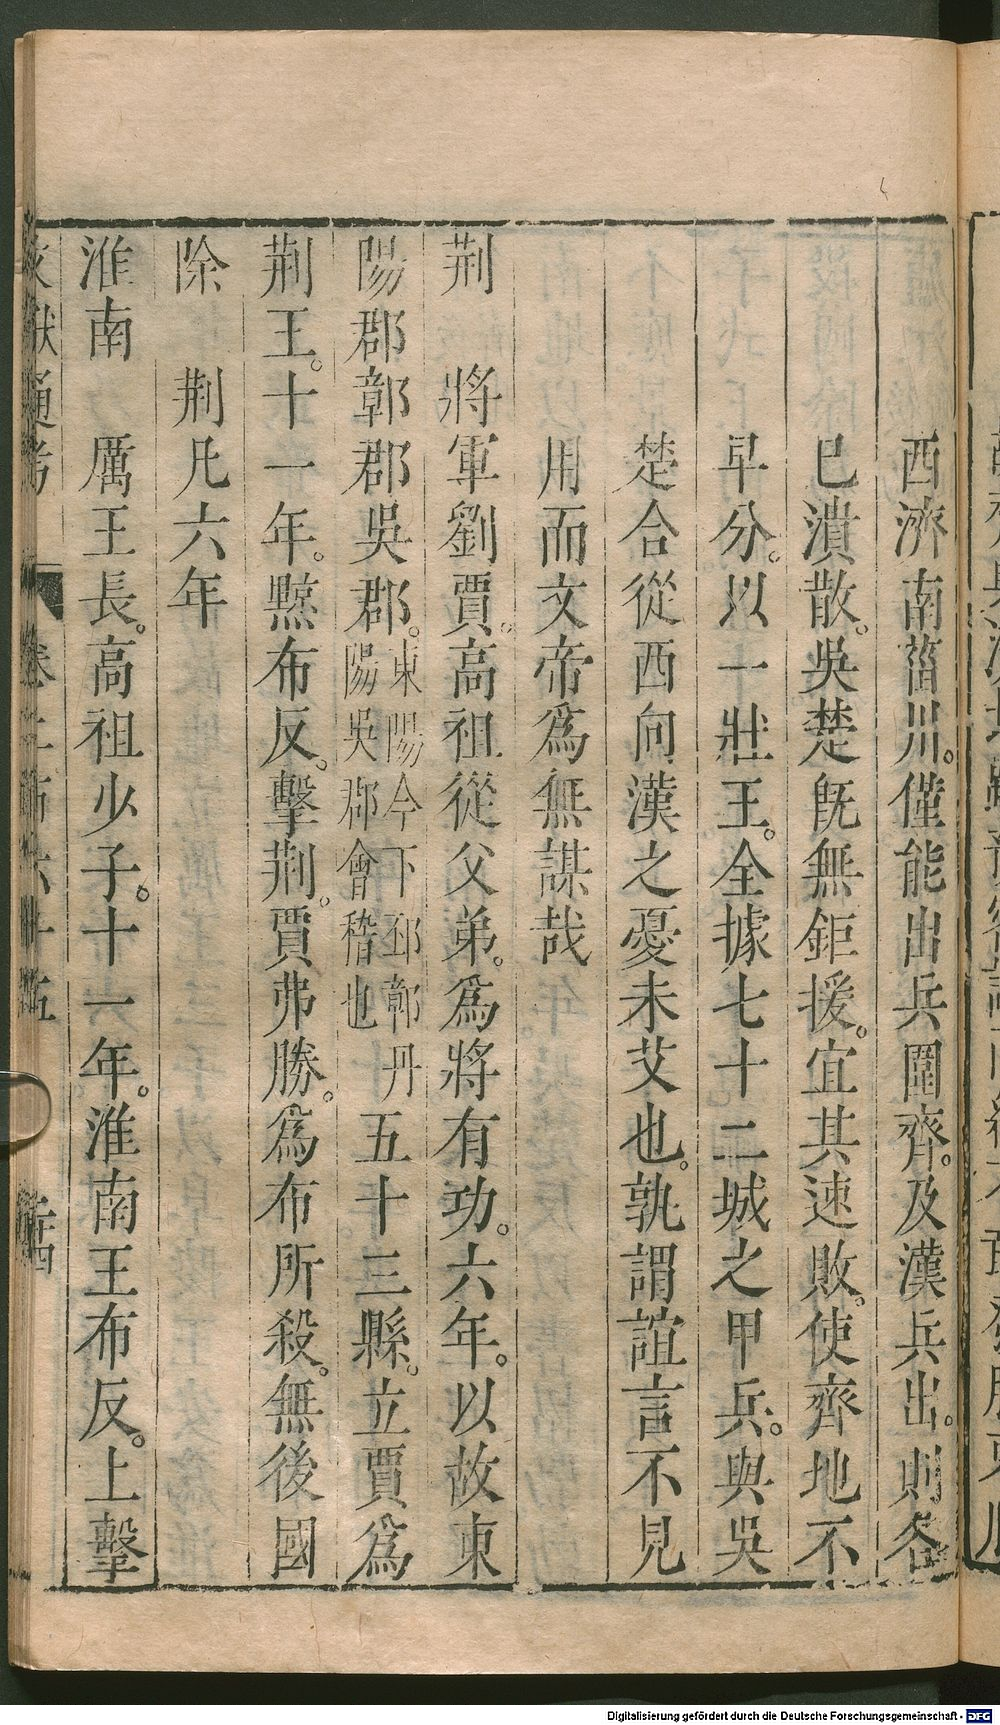 西濟南菑川。僅能出兵圍齊。及漢兵出。則各
已潰散。吳楚旣無鉅援。宜其速敗。使齊地不
早分。以一壯王。全據七十二城之甲兵。與吳
楚合從西向漢之憂未艾也。孰謂誼言不見
用而文帝爲無謀哉
荆 將軍劉賈。高祖從父弟。爲將有功。六年。以故東
陽郡鄣郡吳郡。東陽今下邳鄣丹陽吳郡會稽也五十三縣。立賈爲
荆王。十一年。黥布反。擊荆。賈弗勝。爲布所殺。無後國
除 荆凡六年
淮南 厲王長。高祖少子。十一年。淮南王布反。上擊
文獻通考 卷二百六十五 二十四
Digitalisierung gefördert durch die Deutsche Forschungsgemeinschaft - DFG